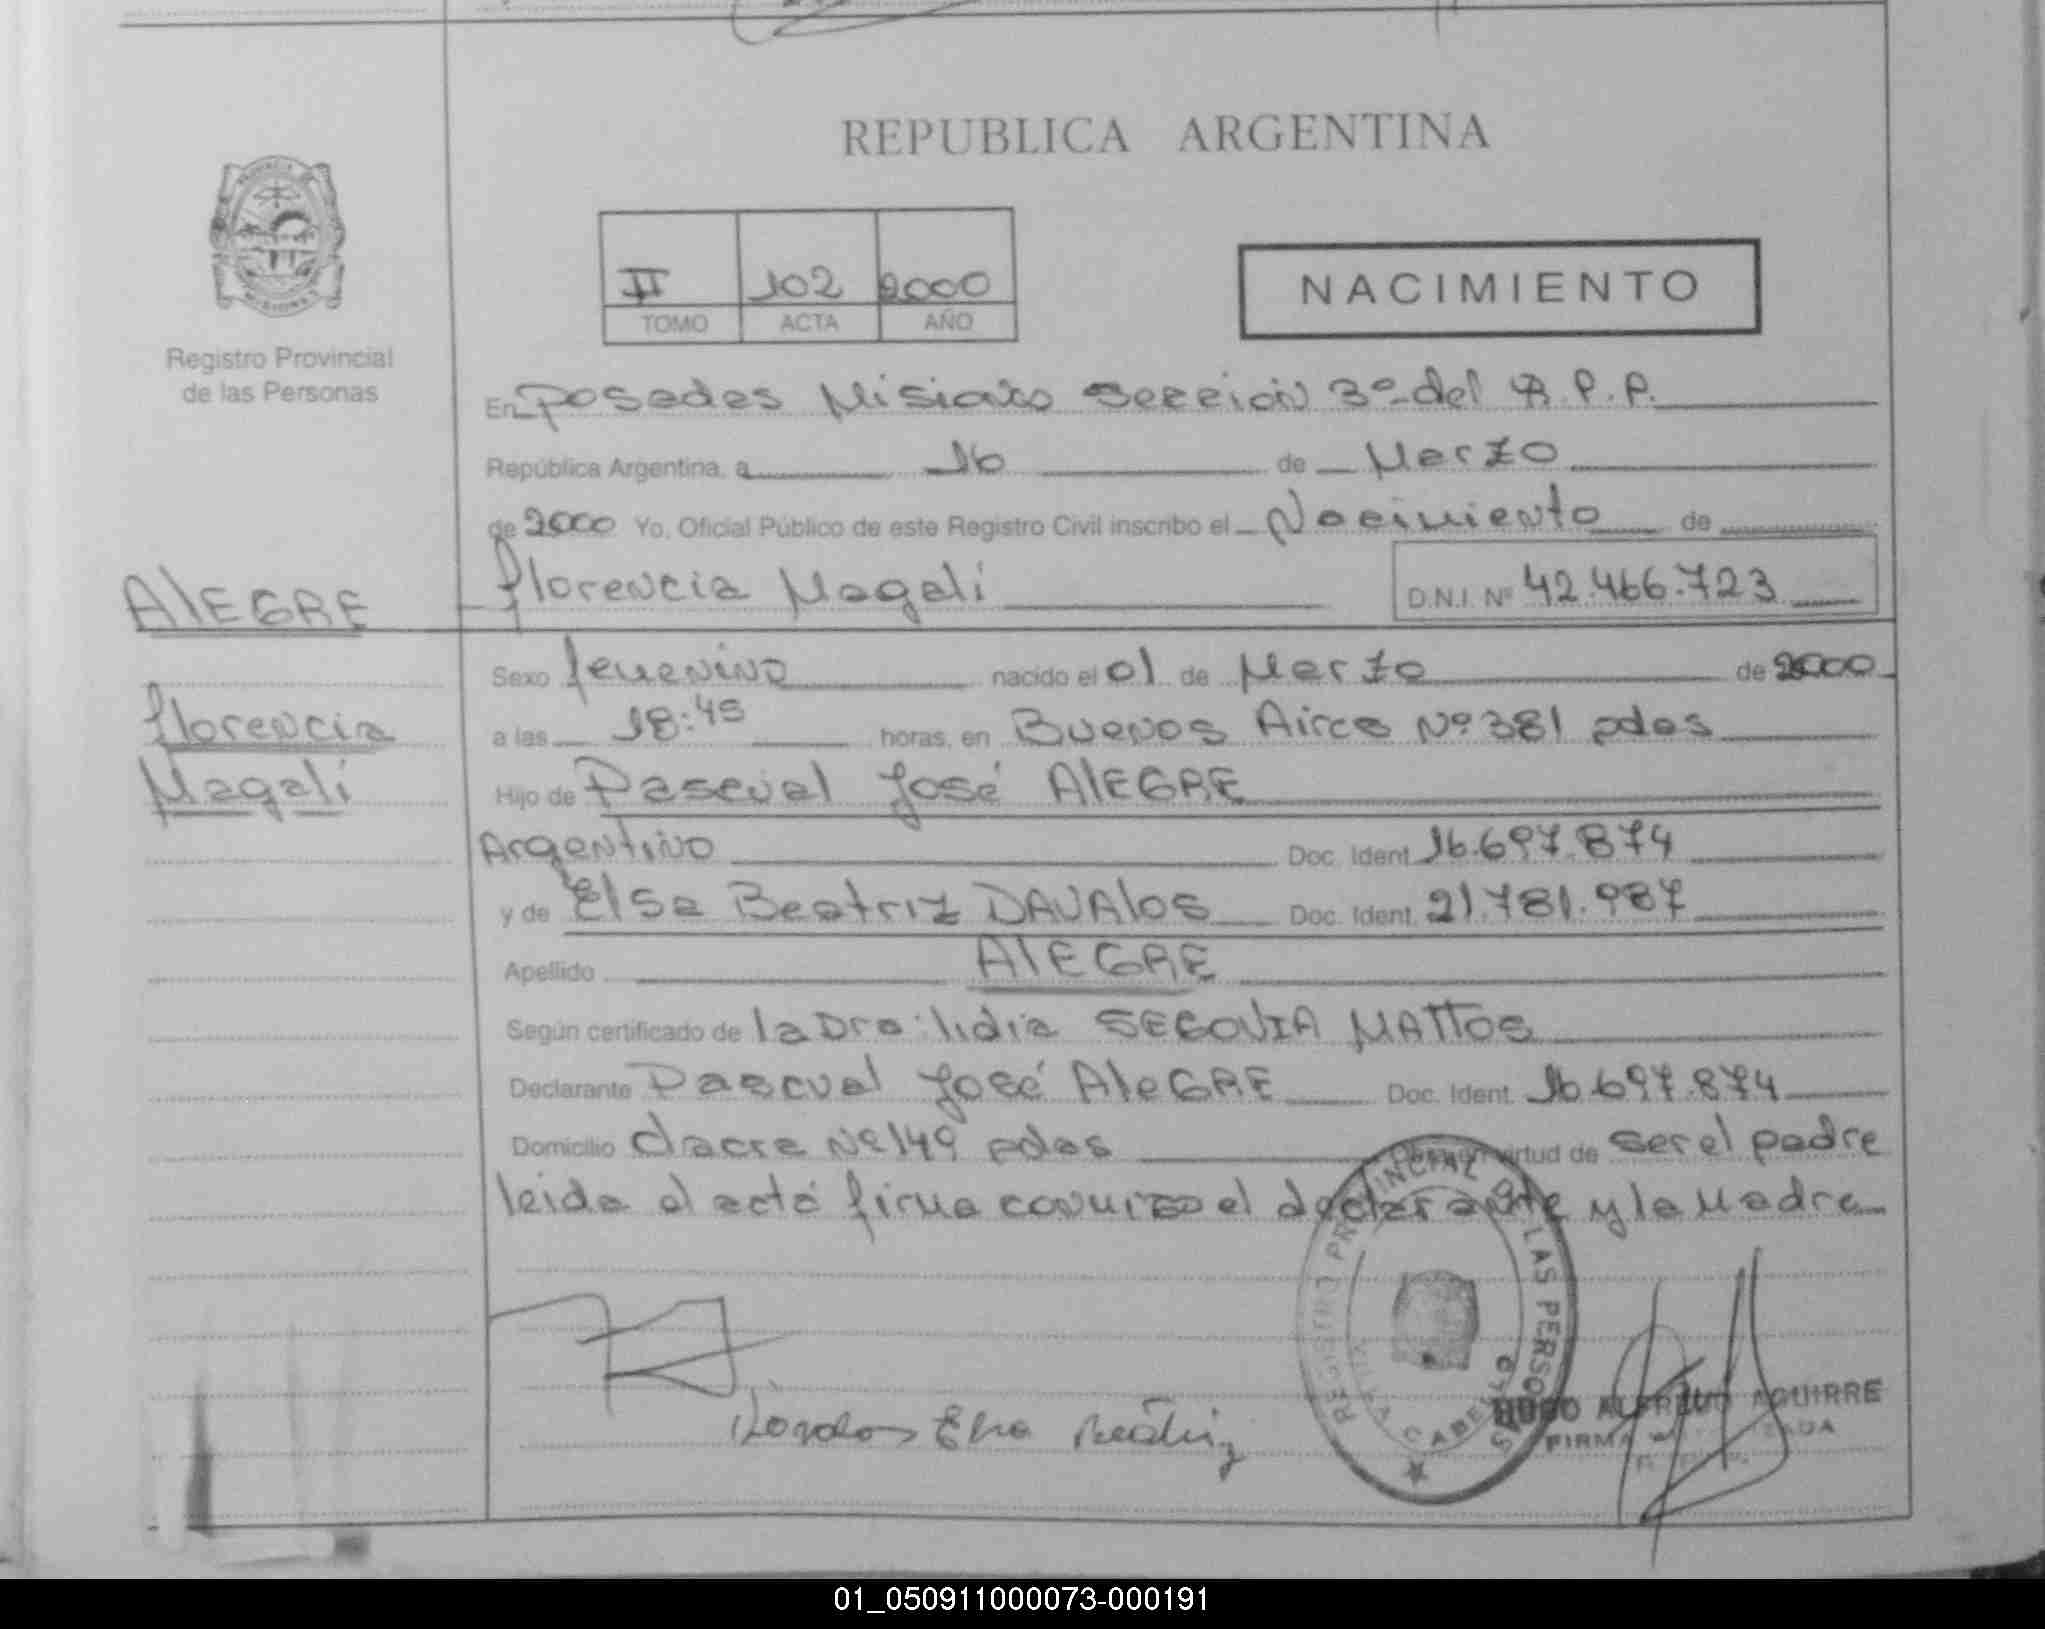 REPUBLICA ARGENTINA
II 102 2000
TOMO ACTA AÑO
NACIMIENTO
Registro Provincial
de las Personas
En Posadas Misiones Sección 3º del R.P.P.
República Argentina, a 16 de Marzo
de 2000 Yo, Oficial Público de este Registro Civil inscribo el Nacimiento de
Florencia Magalí D.N.I. Nº 42.466.723
ALEGRE
Florencia
Magalí
Sexo femenino nacido el 01 de Marzo de 2000
a las 18:45 horas, en Buenos Aires Nº 381 pdas
Hijo de Pascual José ALEGRE
Argentino Doc. Ident. 16.697.874
y de Elsa Beatriz DAVALOS Doc. Ident. 21.781.987
Apellido ALEGRE
Según certificado de la Dra: lidia SEGOVIA MATTOS
Declarante Pascual José AleGRE Doc. Ident. 16.697.874
Domicilio chacra Nº 149 pdas virtud de ser el padre
leida el acta firma conmigo el declarante y la Madre
REGISTRO PROVINCIAL DE LAS PERSONAS
Elsa Beatriz
HUGO ALFREDO AGUIRRE
FIRMA
01_050911000073-000191